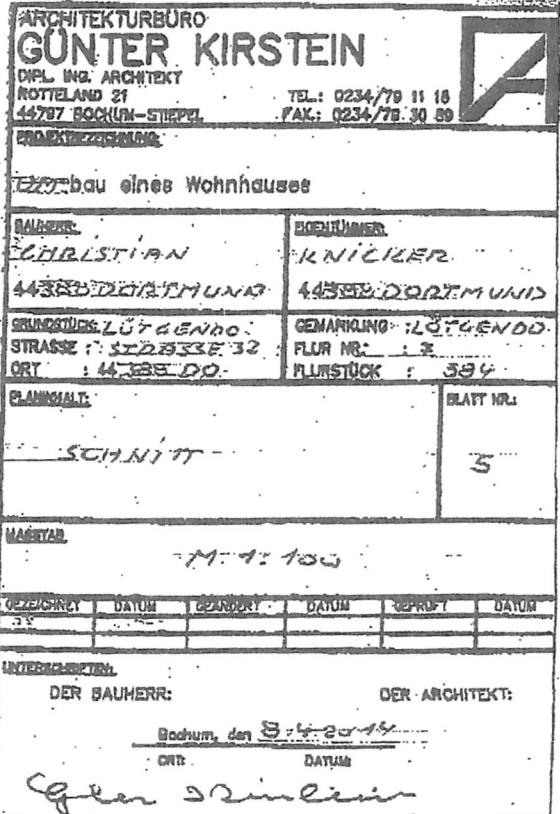 ARCHITEKTURBÜRO
GÜNTER KIRSTEIN
DIPL. ING. ARCHITEKT
ROTTELAND 21
44797 BOCHUM-STIEPEL
TEL.: 0234/79 11 16
FAX.: 0234/79 30 59
PROJEKTBEZEICHNUNG:
bau eines Wohnhauses
BAUHERR:
CHRISTIAN
44388 DORTMUND
EIGENTÜMER:
KNICKER
44388 DORTMUND
GRUNDSTÜCK: LÜTGENDO.
STRASSE : 32
ORT : 44388 DO.
GEMARKUNG : LÜTGENDO.
FLUR NR. :
FLURSTÜCK : 384
PLANINHALT:
SCHNITT
BLATT NR.:
5
MASSTAB
M. 1: 100
GEZEICHNET DATUM GEÄNDERT DATUM GEPRÜFT DATUM
UNTERSCHRIFTEN:
DER BAUHERR: DER ARCHITEKT:
Bochum, den 8.4.2014
ORT: DATUM: